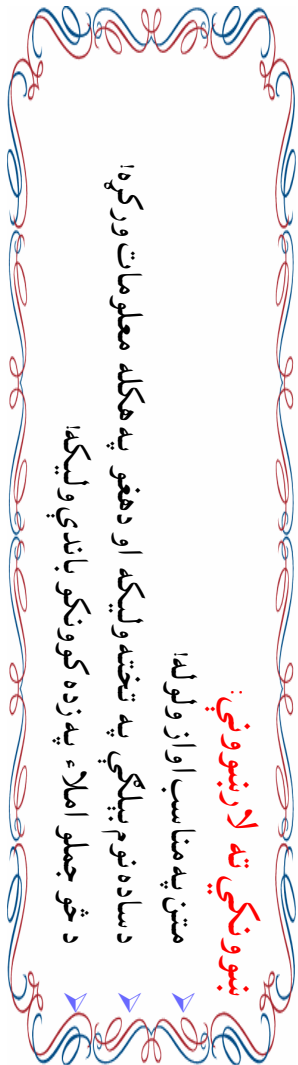 ښوونکي ته لارښووني:
متن په مناسب اواز ولوله!
د ساده نوم بيلګي په تخته وليکه او دهغو په هکله معلومات ورکړه!
د څو جملو املاء په زده کوونکو باندي وليکه!